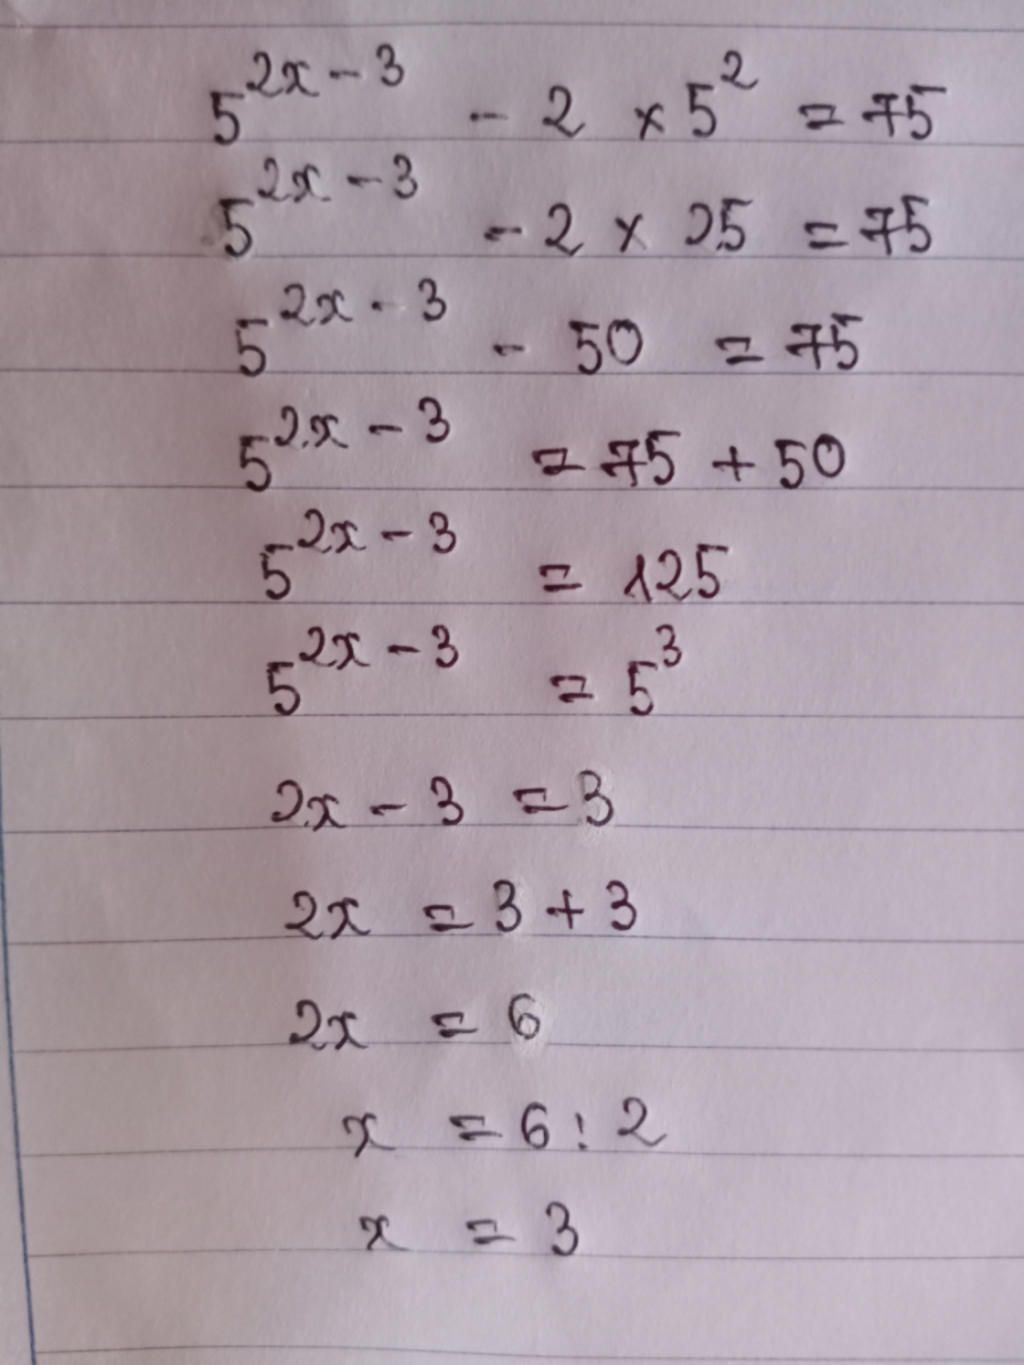 5^{2x - 3} - 2 × 5^2 = 75
5^{2x - 3} - 2 × 25 = 75
5^{2x - 3} - 50 = 75
5^{2x - 3} = 75 + 50
5^{2x - 3} = 125
5^{2x - 3} = 5^3
2x - 3 = 3
2x = 3 + 3
2x = 6
x = 6 : 2
x = 3